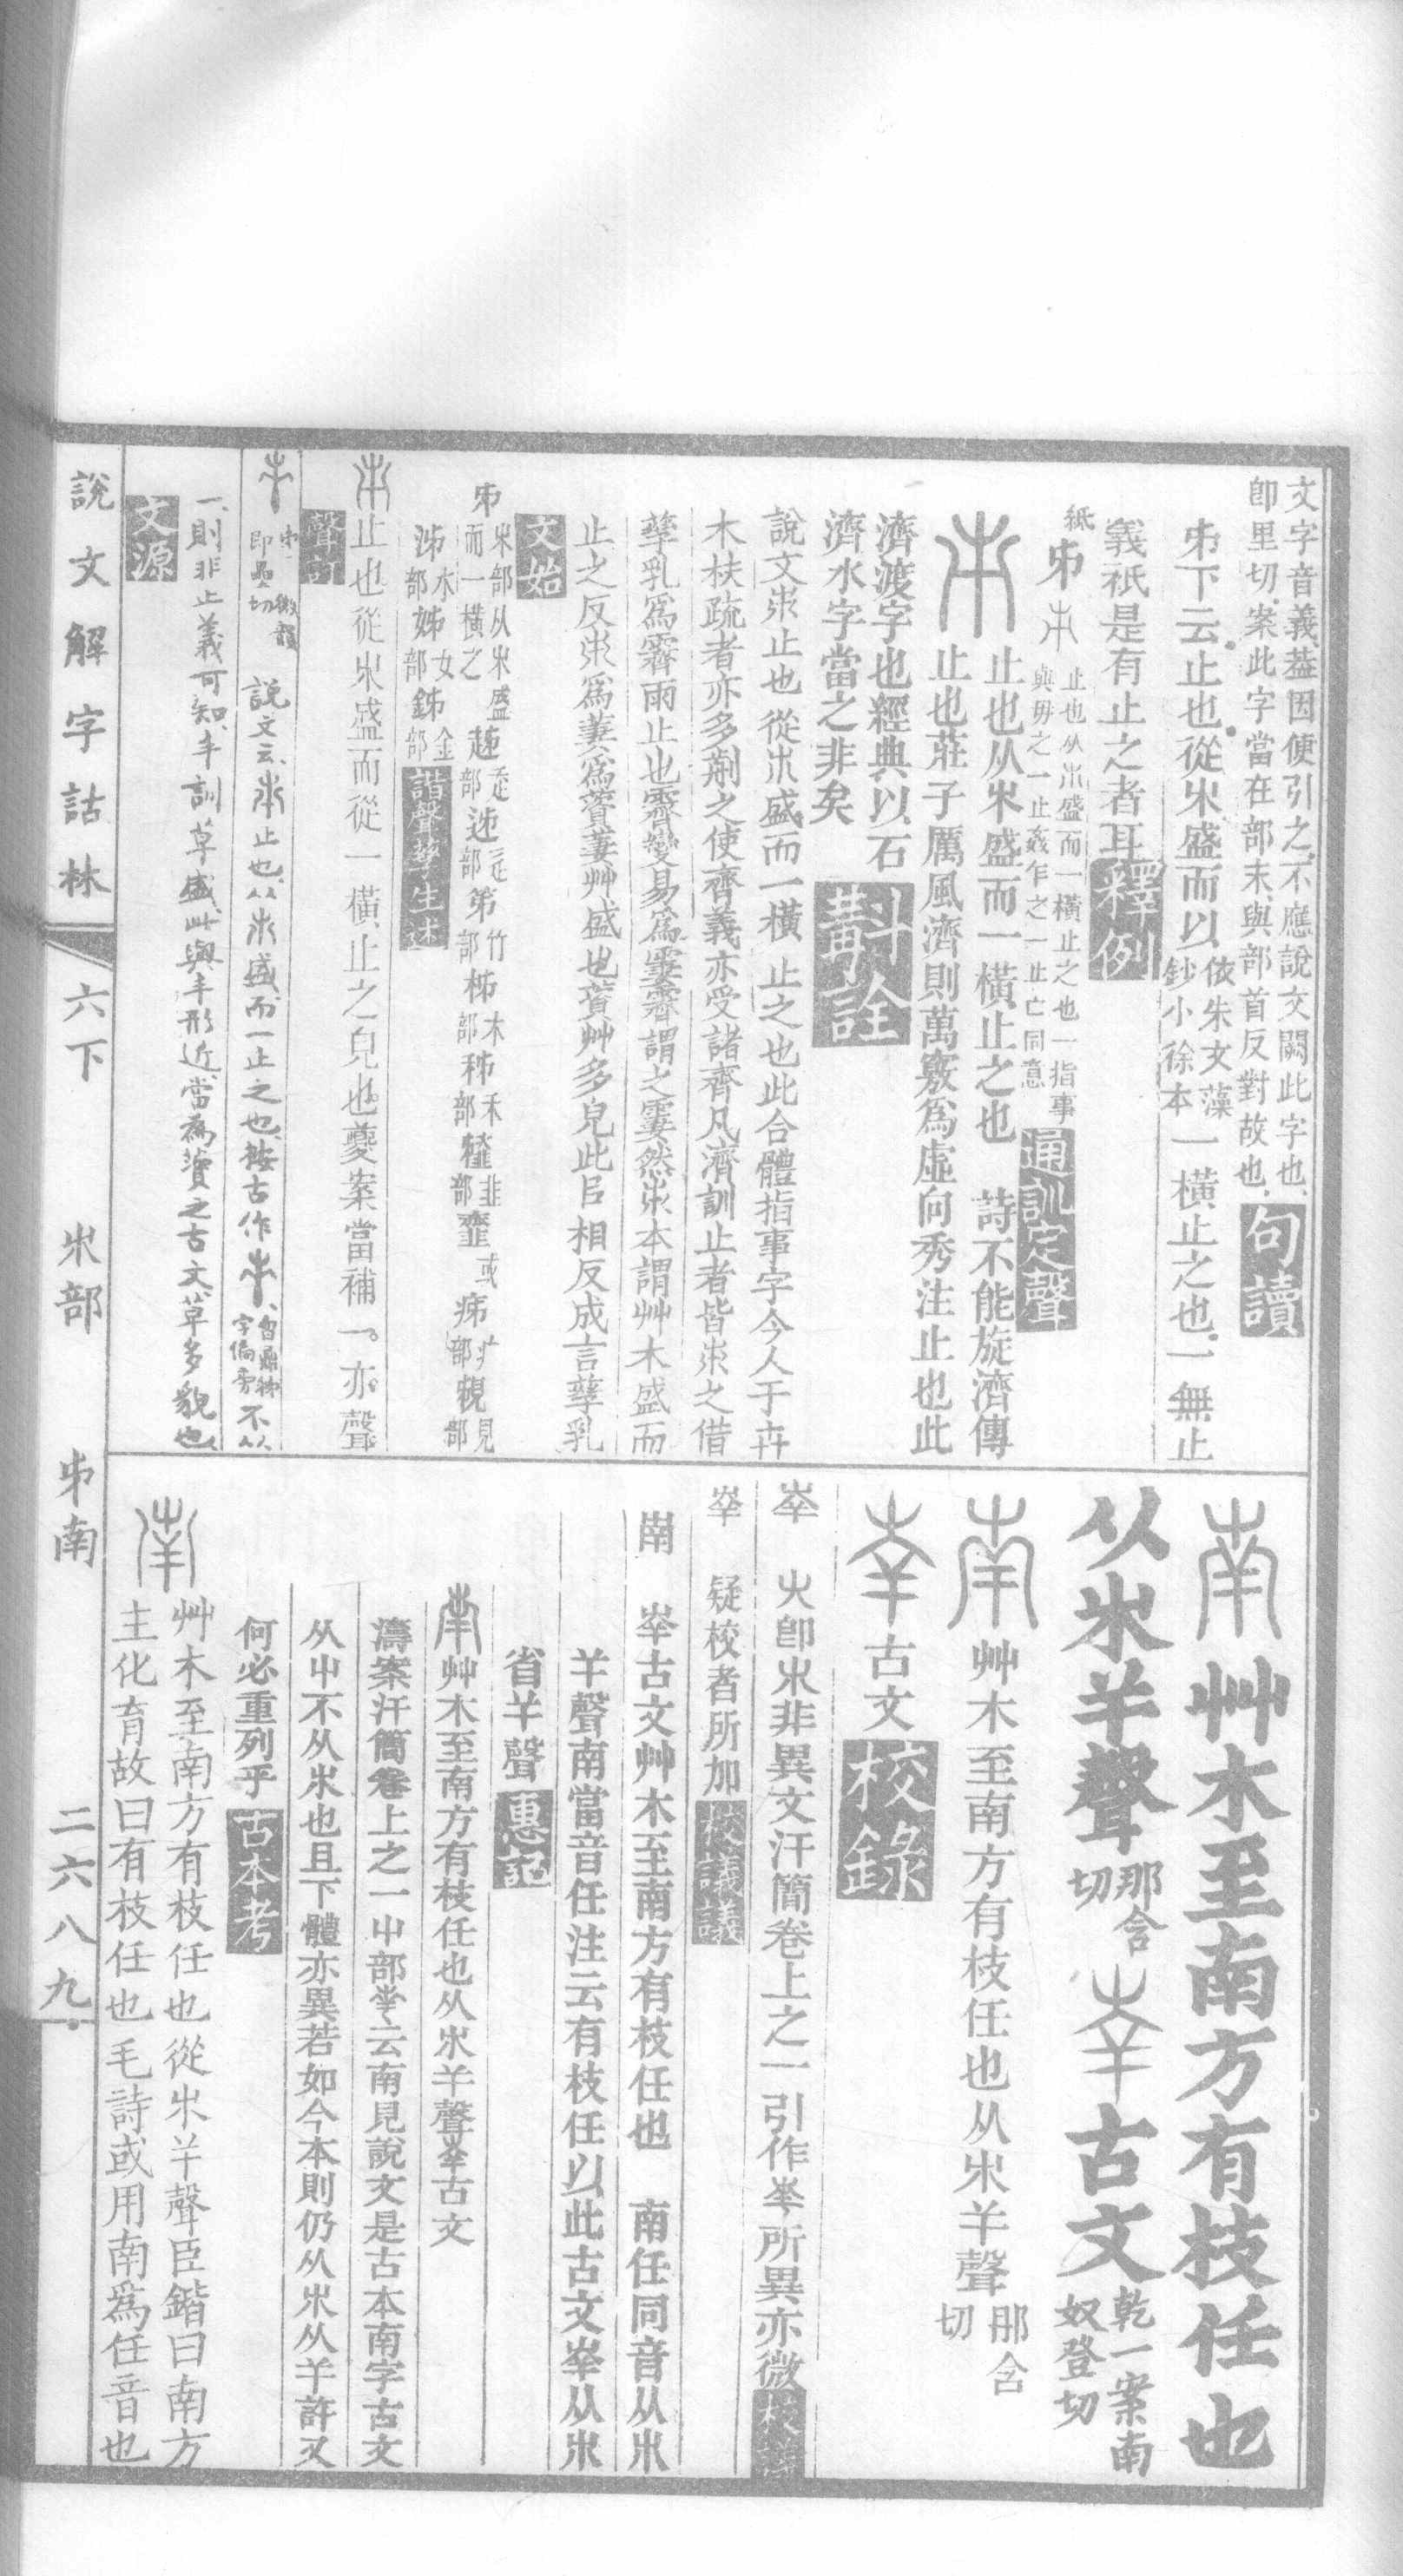 文字音義葢因便引之不應說文闕此字也句讀
卽里切案此字當在部末與部首反對故也
𠂔下云止也從𣎵盛而以依朱文藻鈔小徐本一橫止之也一無止
義祇是有止之者耳釋例
紙𠂔止也从𣎵盛而一橫止之也一指事與毋之一止姦乍之一止亡同意通訓定聲
止也从𣎵盛而一橫止之也 詩不能旋濟傳
止也莊子厲風濟則萬竅爲虛向秀注止也此
濟渡字也經典以石
濟水字當之非矣
斠詮
說文𠂔止也從𣎵盛而一橫止之也此合體指事字今人于卉
木扶疏者亦多剪之使齊義亦受諸齊凡濟訓止者皆𠂔之借
孳乳爲霽雨止也霽變易爲霋霽謂之霋然𠂔本謂艸木盛而
止之反𠂔爲萋爲薋萋艸盛也薋艸多皃此㠯相反成言孳乳
文始
𠂔𣎵部从𣎵盛而一橫之
泲水部姊女部鈰金部諧聲孳生述
止也從𣎵盛而從一橫止之皃也夔案當補一亦聲
聲訂
𠂔卽里切微韻 說文云𠂔止也从𣎵盛而一止之也按古作字偏旁不从
一則非止義可知丰訓草盛此與丰形近當爲薋之古文草多貌也
文源
說文解字詁林 六下 𣎵部 𠂔南 二六八九
南 艸木至南方有枝任也
从𣎵𢆉聲那含切 古文乾一案南奴登切
艸木至南方有枝任也从𣎵𢆉聲那含切
古文校錄
卽𣎵非異文汗簡卷上之一引作所異亦微
疑校者所加校議議
古文艸木至南方有枝任也 南任同音从𣎵
𢆉聲南當音任注云有枝任以此古文从𣎵
省𢆉聲惠記
艸木至南方有枝任也从𣎵𢆉聲古文
濤案汗簡卷上之一屮部云南見說文是古本南字古文
从屮不从𣎵也且下體亦異若如今本則仍从𣎵从𢆉許又
何必重列乎古本考
艸木至南方有枝任也從𣎵𢆉聲臣鍇曰南方
主化育故曰有枝任也毛詩或用南爲任音也